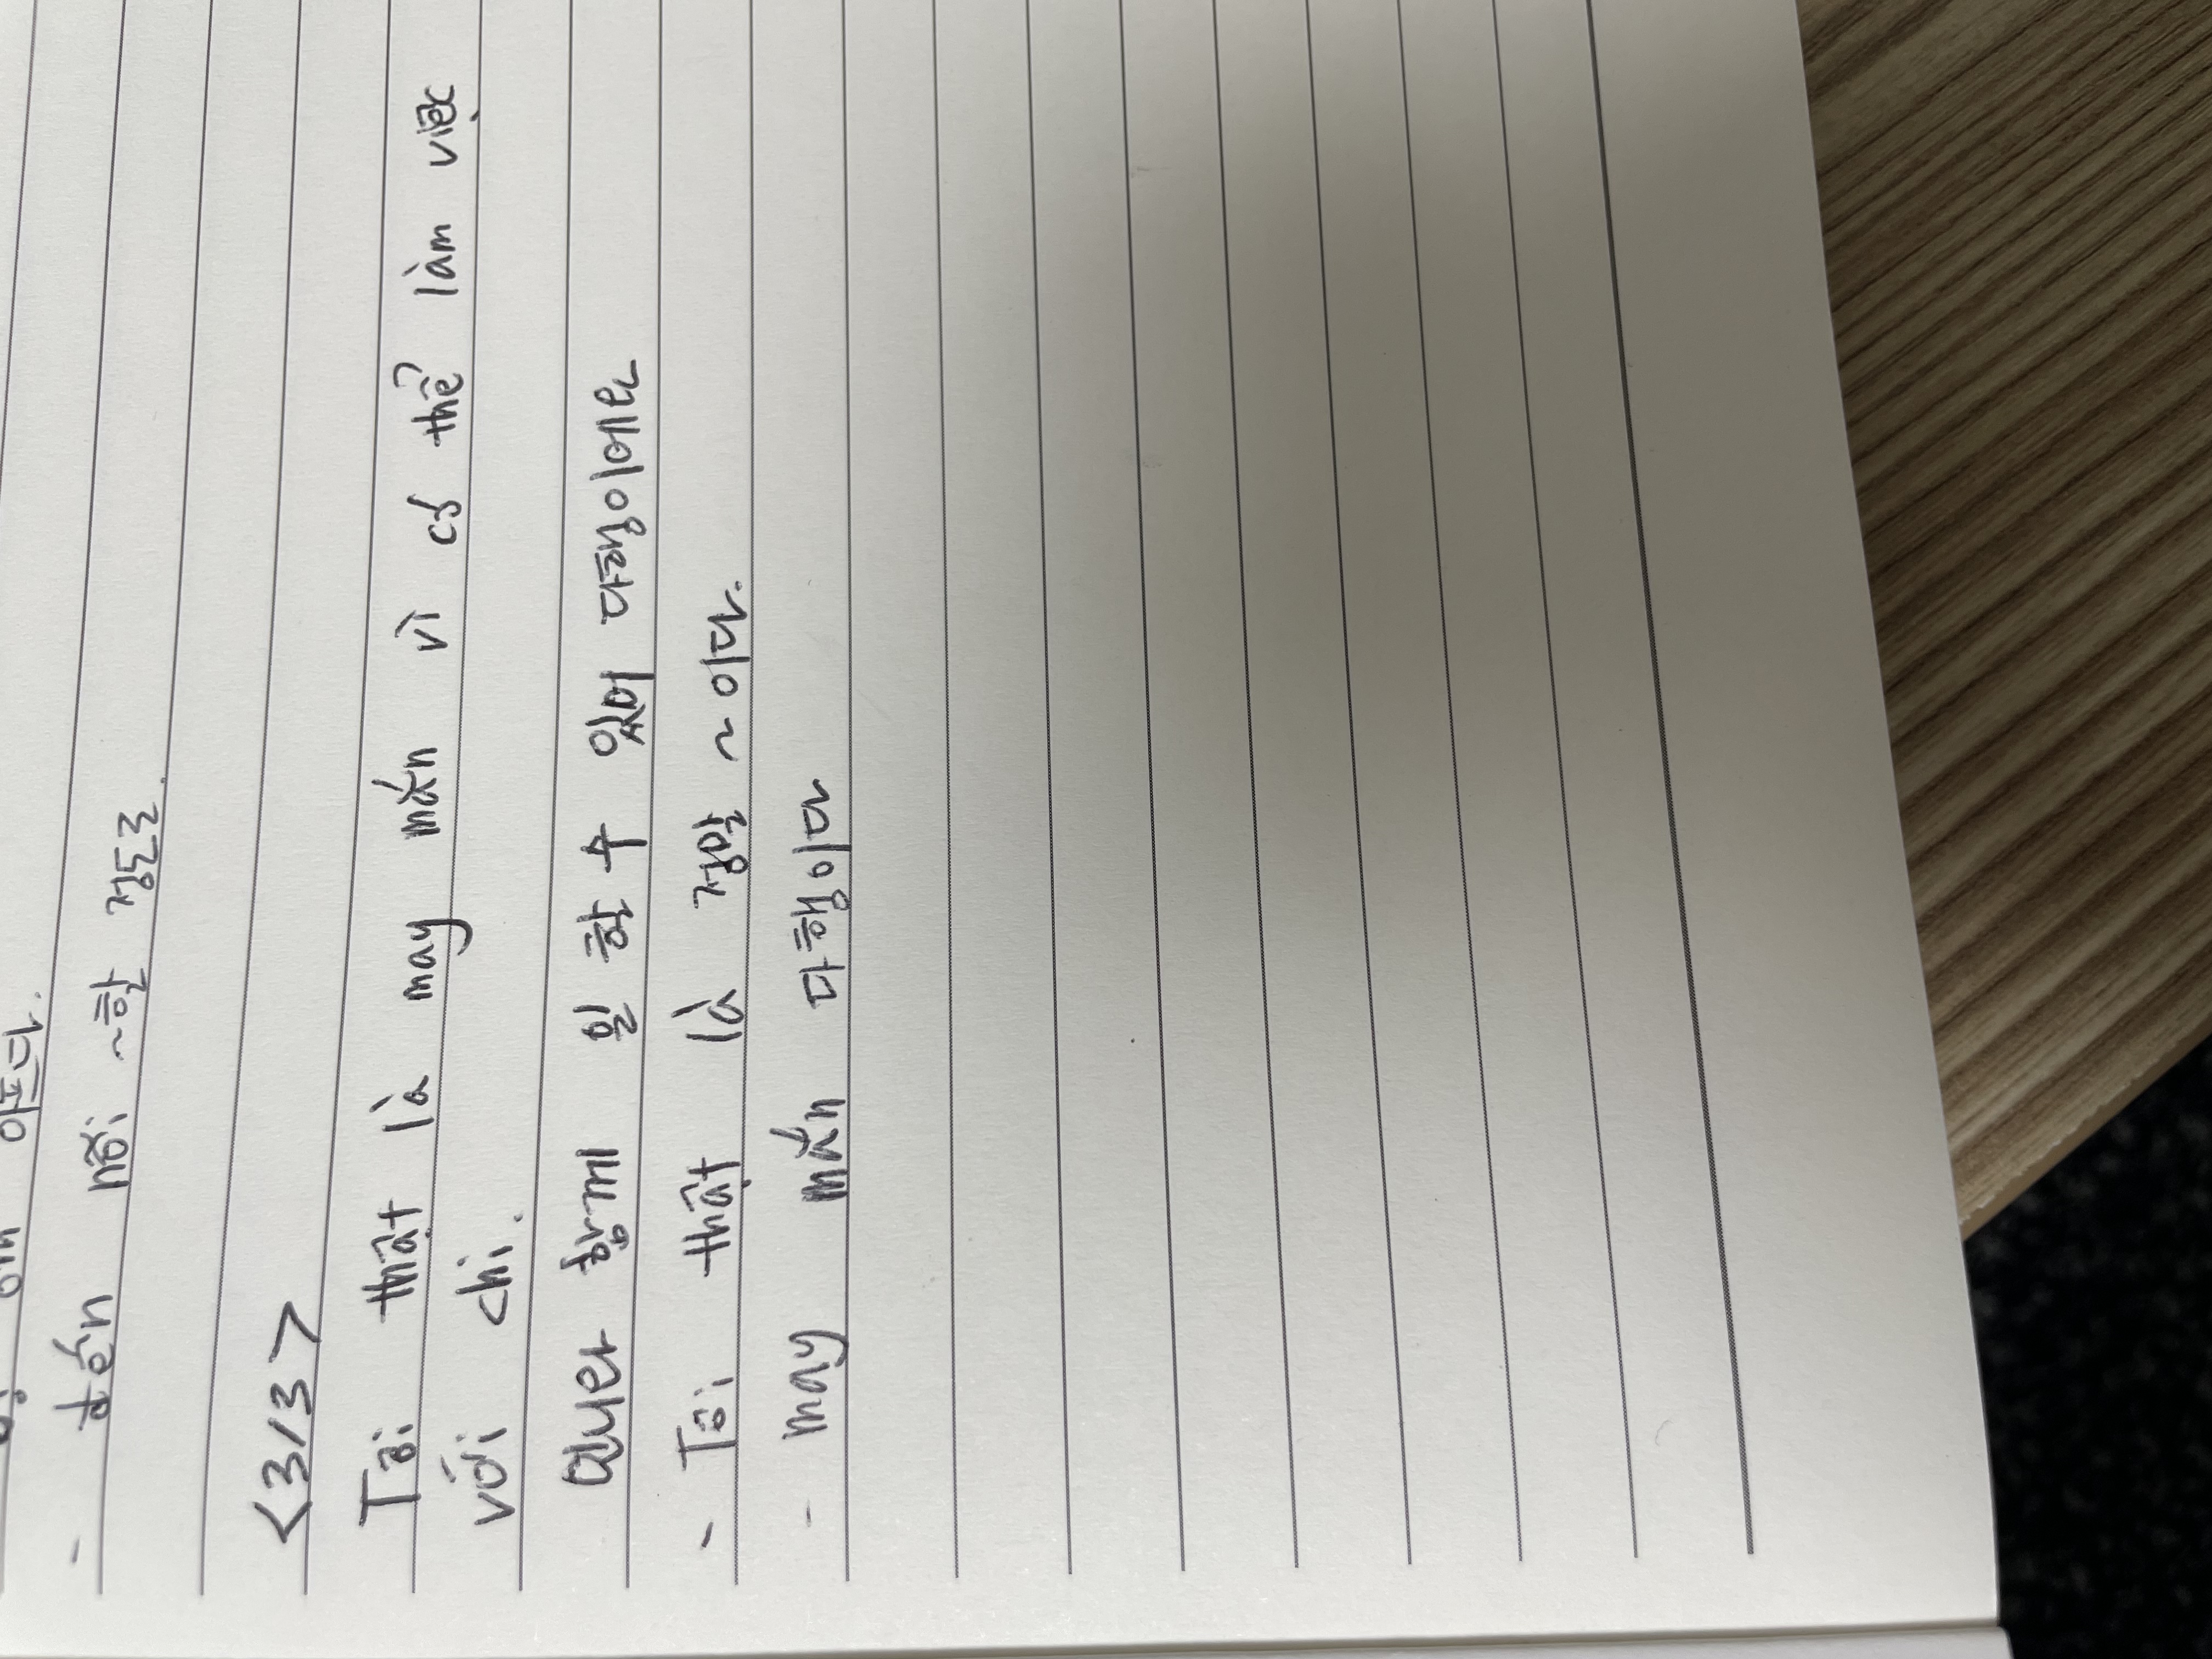 아프다.
- đến nỗi ~할 정도로.
<3/3>
Tôi thật là may mắn vì có thể làm việc
với chị.
언니와 함께 일 할 수 있어 다행이에요
- Tôi thật là 정말 ~이다.
- may mắn 다행이다